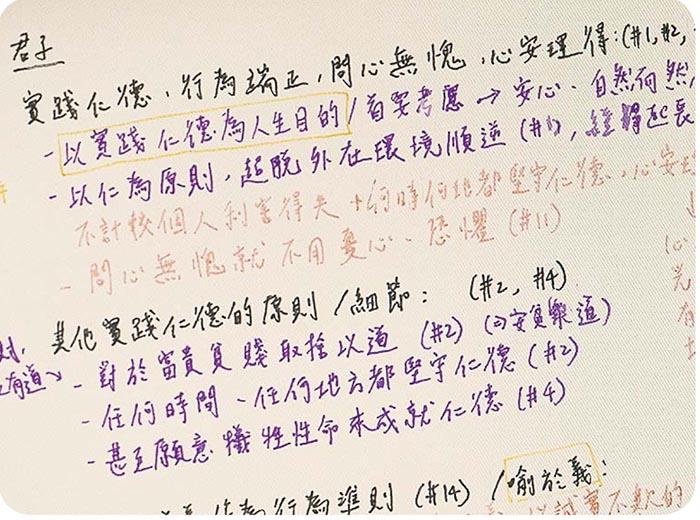 君子
實踐仁德，行為端正，問心無愧，心安理得：(#1, #2,
- 以實踐仁德為人生目的/首要考慮 → 安心、自然而然，
- 以仁為原則，超脫外在環境順逆 (#1)，經得起長
不計較個人利害得失 + 何時何地都堅守仁德，心安
- 問心無愧就不用憂心、恐懼 (#11)
其他實踐仁德的原則/細節： (#2, #4)
- 對於富貴貧賤取捨以道 (#2) (安貧樂道)
有道
- 任何時間、任何地方都堅守仁德 (#2)
- 甚至願意犧牲性命來成就仁德 (#4)
為行為準則 (#14) /喻於義：
以誠實不欺的